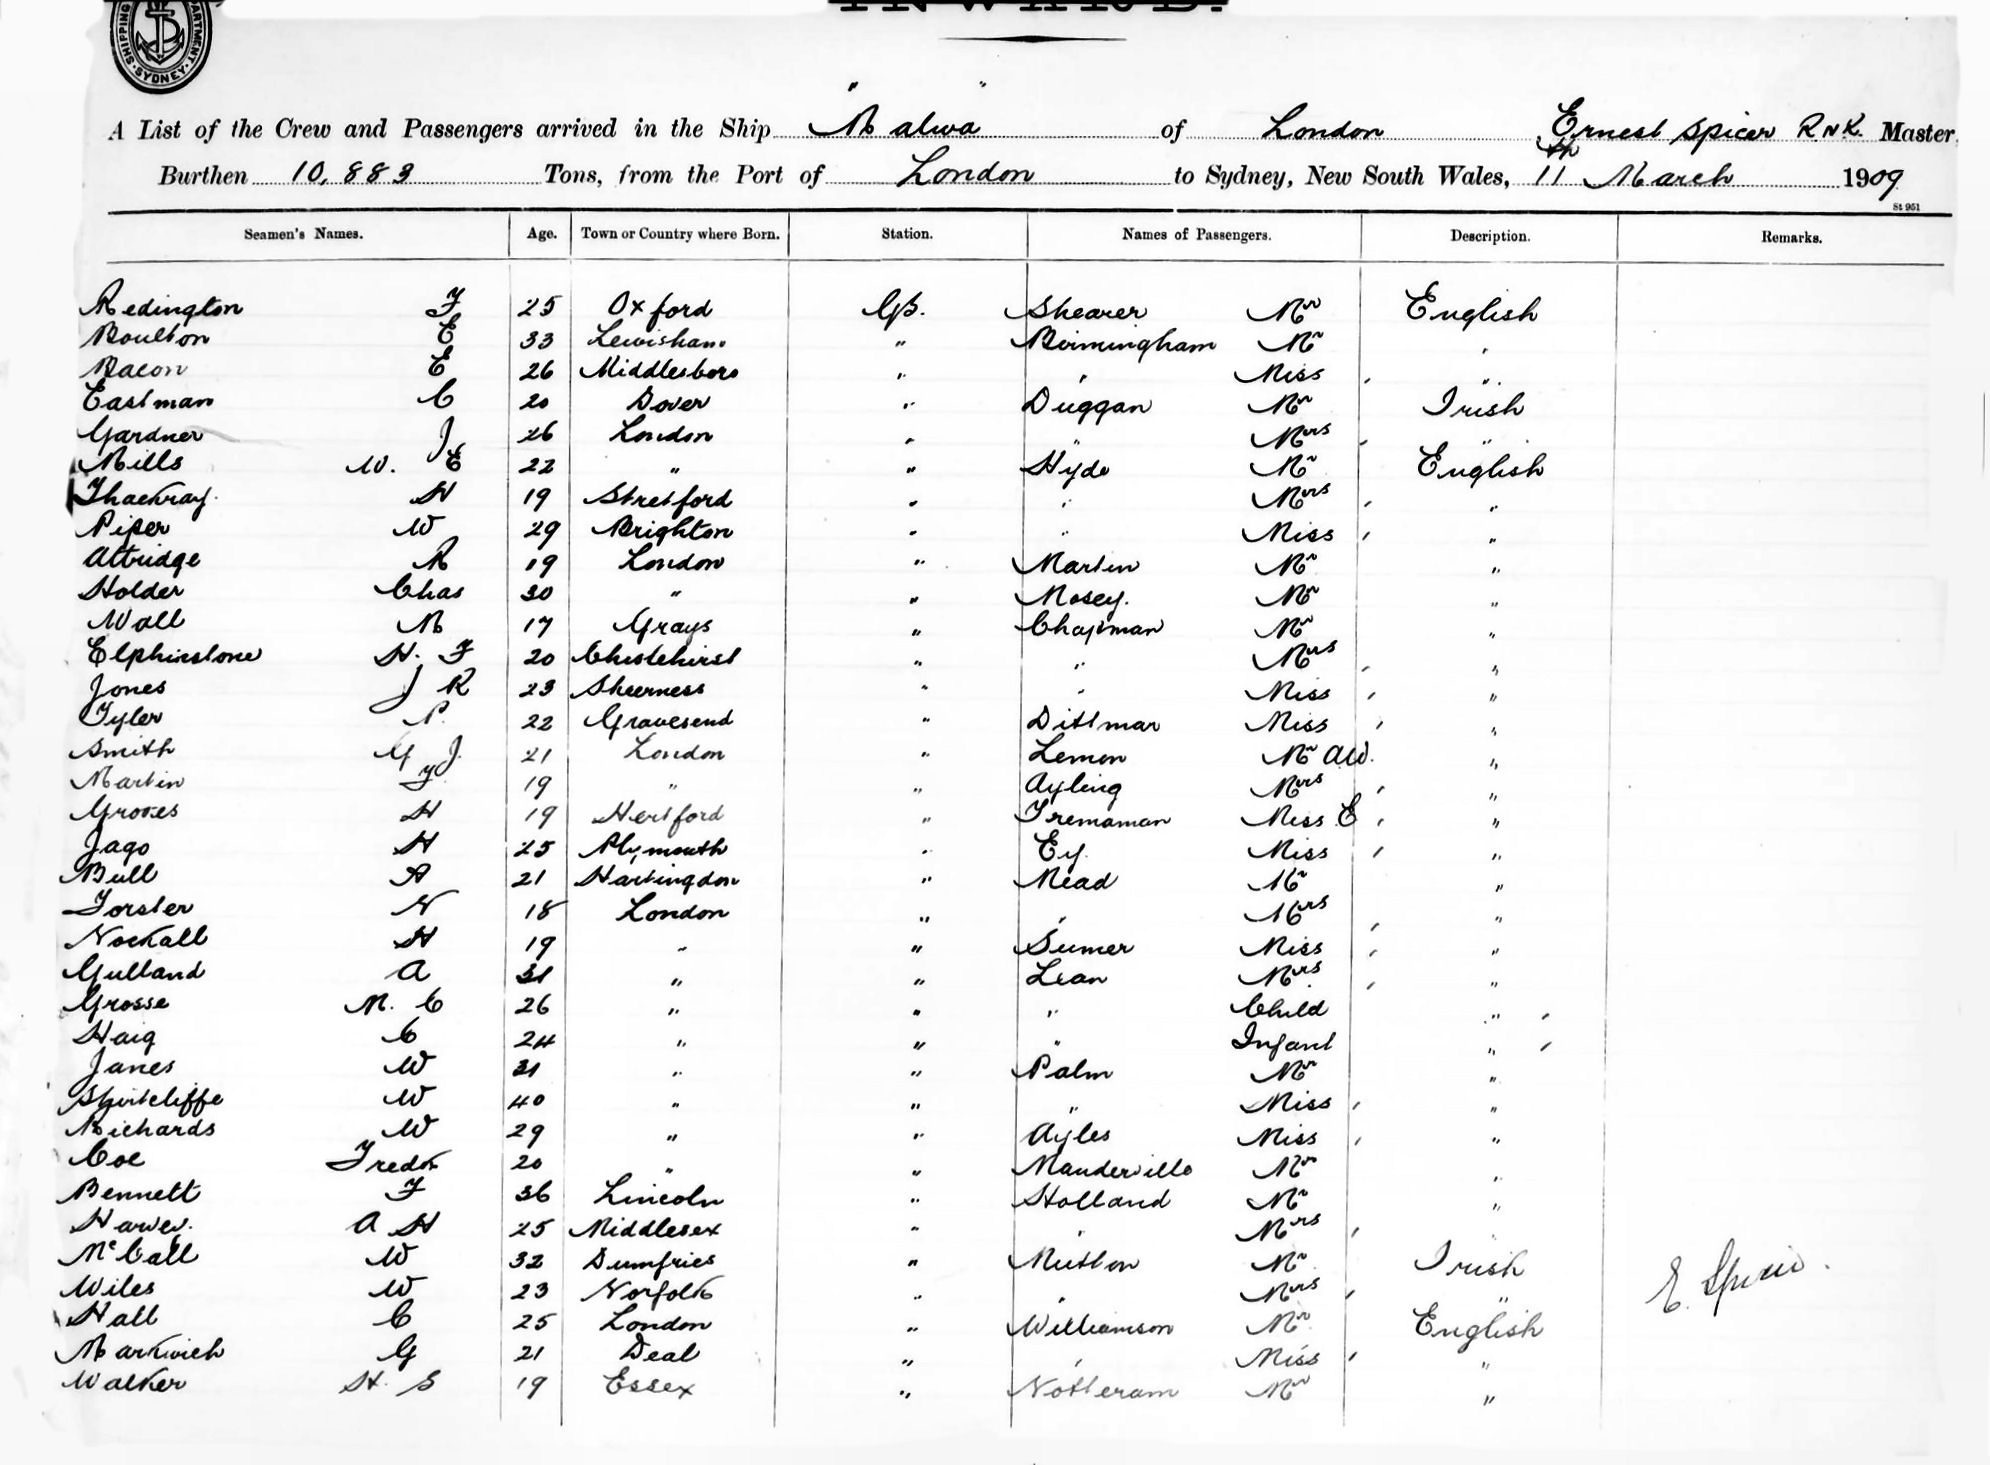 INWARD.
SHIPPING DEPARTMENT. SYDNEY.
A List of the Crew and Passengers arrived in the Ship "Malwa" of London Ernest Spicer R.N.R. Master
Burthen 10,883 Tons, from the Port of London to Sydney, New South Wales, 11th March 1909
St 951
Seamen's Names. Age. Town or Country where Born. Station. Names of Passengers. Description. Remarks.
Redington F 25 Oxford GS. Shearer Mr English
Boulton E 33 Lewisham " Birmingham Mr "
Bacon E 26 Middlesboro " " Miss "
Eastman C 20 Dover " Duggan Mr Irish
Gardner J 26 London " " Mrs "
Mills W. E 22 " " Hyde Mr English
Thackray H 19 Stretford " " Mrs "
Piper W 29 Brighton " " Miss "
Attridge R 19 London " Martin Mr "
Holder Chas 30 " " Mosey. Mr "
Wall M 17 Grays " Chapman Mr "
Elphinstone H. F 20 Chistehirst " " Mrs "
Jones J R 23 Sheerness " " Miss "
Tyler P. 22 Gravesend " Dittmar Miss "
Smith G J. 21 London " Lemon Mr AW. "
Martin F 19 " " Ayling Mrs "
Groves H 19 Hertford " Tremaman Miss E "
Jago H 25 Plymouth " Ey Miss "
Bull A 21 Hartingdon " Mead Mr "
Forster N 18 London " " Mrs "
Nockall H 19 " " Sumer Miss "
Gulland A 31 " " Lean Mrs "
Grosse M. C 26 " " " Child "
Haig C 24 " " " Infant "
Janes W 31 " " Palm Mr "
W 40 " " " Miss "
Richards W 29 " " Ayles Miss "
Coe Fredk 20 " " Manderville Mr "
Bennett F 36 Lincoln " Holland Mr "
Harvey. A H 25 Middlesex " " Mrs "
McCall W 32 Dumfries " Mutton Mr Irish
Wiles W 23 Norfolk " " Mrs "
Hall C 25 London " Williamson Mr English
Markwich G 21 Deal " " Miss "
Walker H. S 19 Essex " Notteram Mr "
E. Spicer.